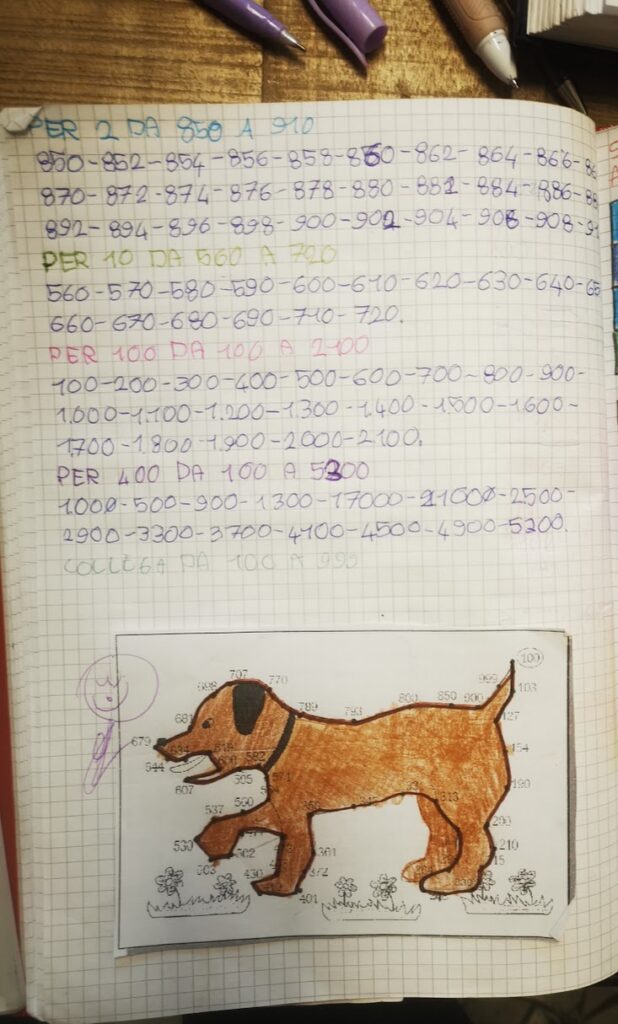 PER 2 DA 850 A 910
850-852-854-856-858-860-862-864-866-86
870-872-874-876-878-880-882-884-886-88
892-894-896-898-900-902-904-906-908-91
PER 10 DA 560 A 720
560-570-580-590-600-610-620-630-640-65
660-670-680-690-710-720.
PER 100 DA 100 A 2100
100-200-300-400-500-600-700-800-900-
1.000-1.100-1.200-1.300-1.400-1.500-1.600-
1.700-1.800-1.900-2000-2100.
PER 400 DA 100 A 5300
1000-500-900-1300-17000-21000-2500-
2900-3300-3700-4100-4500-4900-5200.
COLLEGA DA 100 A 999
100
707
770
999
103
698
789
793
809
850
900
127
681
679
634
618
600
582
154
644
607
595
571
190
560
537
350
313
530
200
502
361
210
503
430
372
15
401